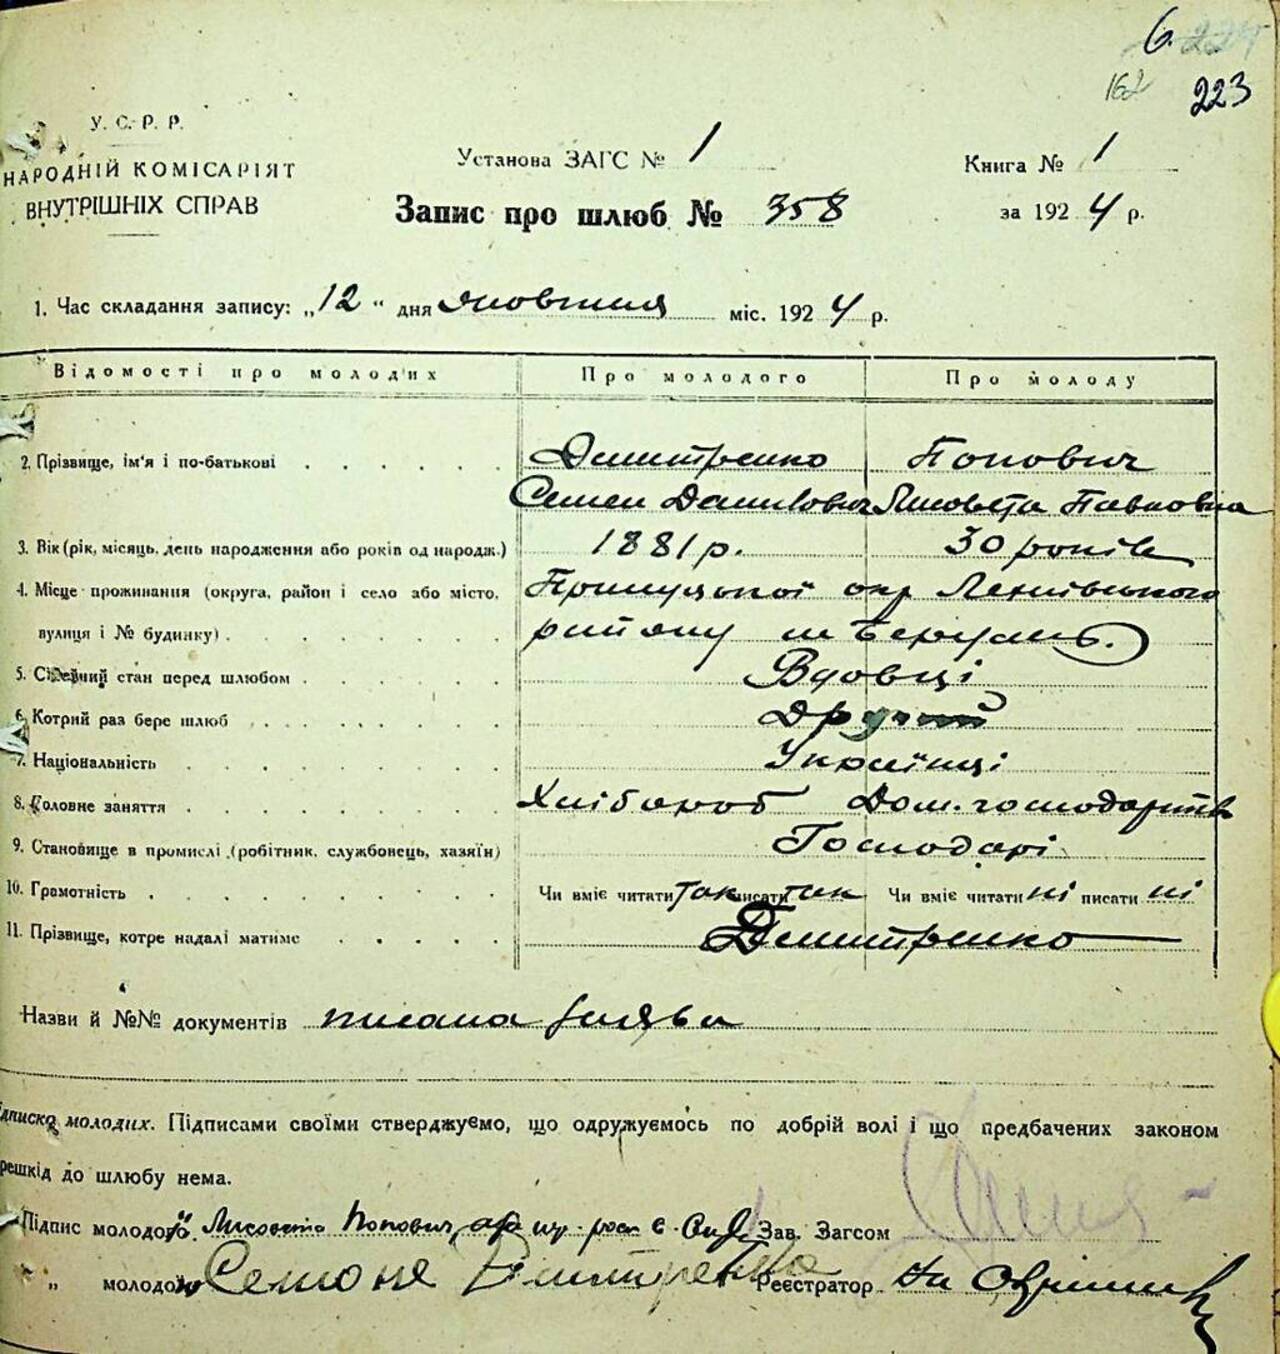 6.
162 223
У. С. Р. Р.
НАРОДНІЙ КОМІСАРІЯТ
ВНУТРІШНІХ СПРАВ
Установа ЗАГС № 1
Книга № 1
Запис про шлюб № 358
за 1924 р.
1. Час складання запису: „12“ дня жовтня міс. 1924 р.
Відомості про молодих Про молодого Про молоду
2. Прізвище, ім'я і по-батькові Дмитренко Попович
Семен Данилович Лисовета Павловна
3. Вік (рік, місяць, день народження або років од народж.) 1881 р. 30 років
4. Місце проживання (округа, район і село або місто, Прилуцької окр
вулиця і № будинку) району
5. Сімейний стан перед шлюбом Вдовці
6. Котрий раз бере шлюб Другий
7. Національність Українці
8. Головне заняття Хлібороб Дом. господарств
9. Становище в промислі (робітник, службовець, хазяїн) Господарі
10. Грамотність Чи вміє читати так писати так Чи вміє читати ні писати ні
11. Прізвище, котре надалі матиме Дмитренко
Назви й №№ документів писана заява
дписка молодих. Підписами своїми стверджуємо, що одружуємось по добрій волі і що предбачених законом
решкід до шлюбу нема.
Підпис молодого Лисовета Попович Зав. Загсом
„ молодої Семоне Дмитренко Реєстратор